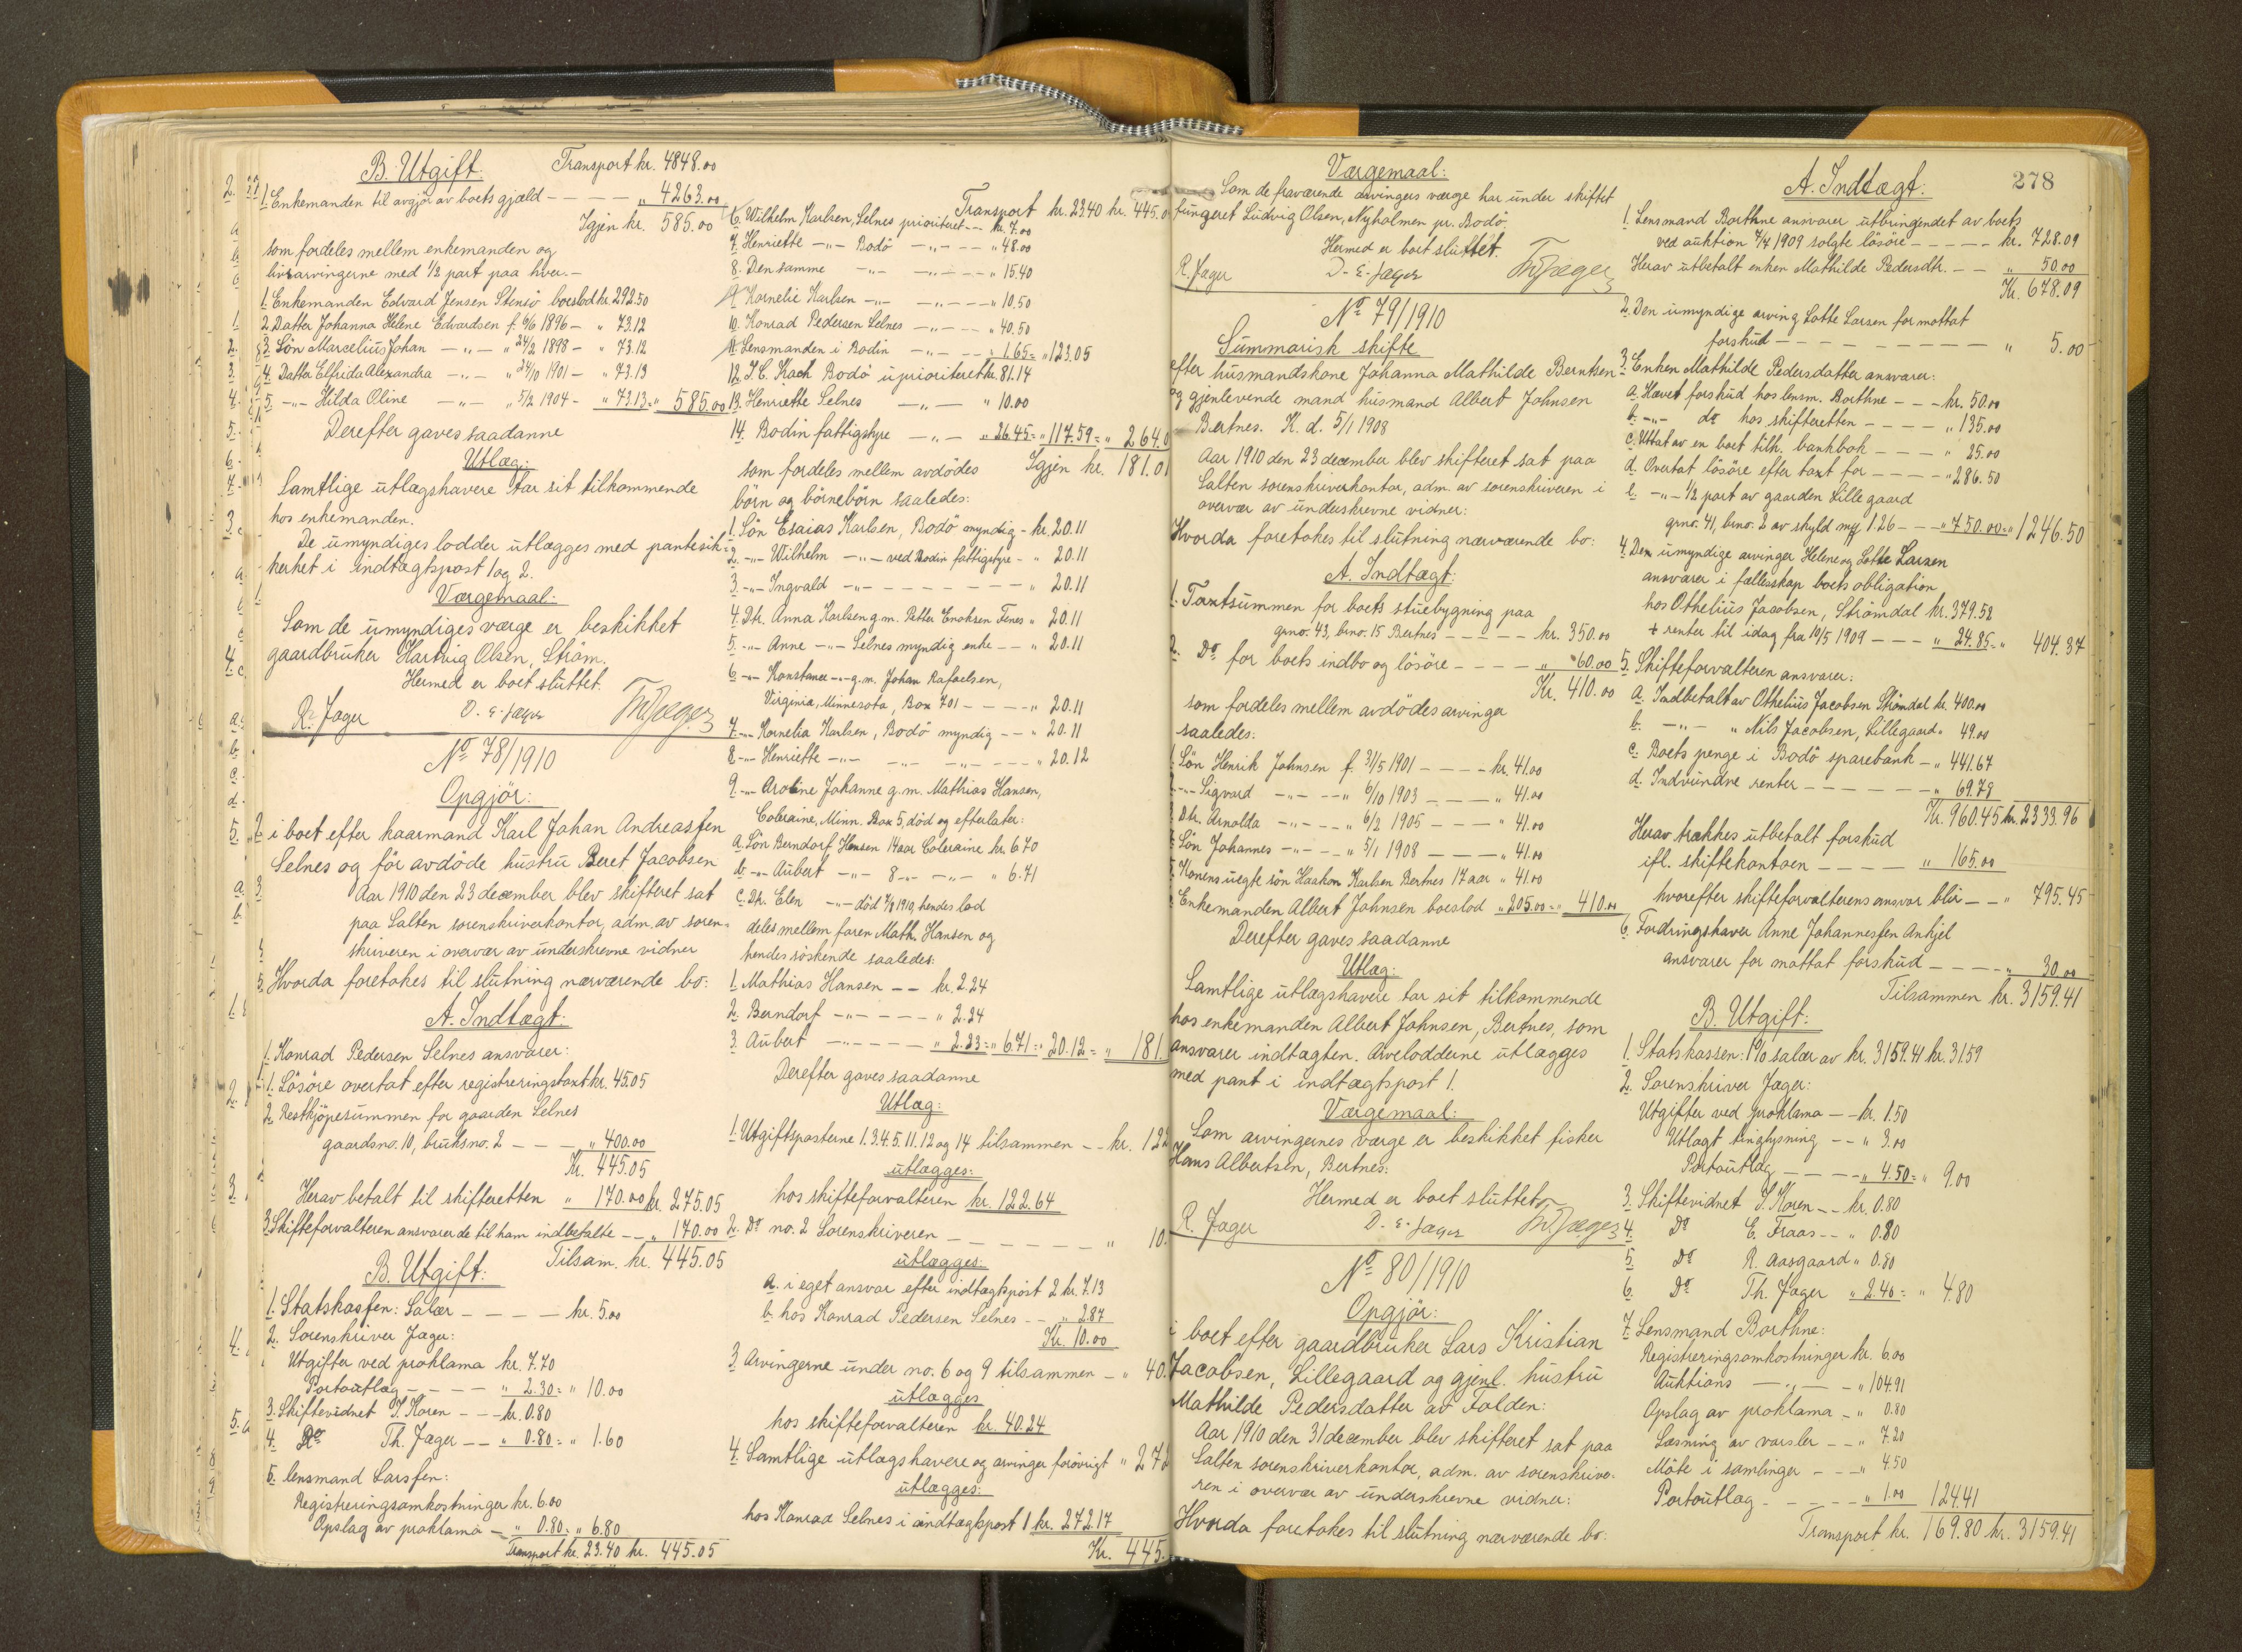 B. Utgift: Transport kr. 4848.00
1. Enkemanden til avgjør av boets gjæld - - - - " 4263.00
Igjen kr. 585.00
som fordeles mellem enkemanden og
livsarvingerne med 1/2 part paa hver. -
1. Enkemanden Edvard Jensen Stensö boeslod kr. 292.50
2. Datter Johanna Helene Edvardsen f. 6/6 1896 - " 73.12
3. Sön Marcelius Johan -"- " 24/2 1898 - " 73.12
4. Datter Elfrida Alexandra -"- " 24/10 1901 - " 73.13
5. -"- Hilda Oline -"- " 5/2 1904 - " 73.13 = " 585.00
Derefter gaves saadanne
Utlæg:
Samtlige utlægshavere tar sit tilkommende
hos enkemanden.
De umyndiges lodder utlægges med pantesik-
kerhet i indtægtspost 1 og 2.
Værgemaal:
Som de umyndiges værge er beskikket
gaardbruker Hartvig Olsen, Ström.
Hermed er boet sluttet.
R. Jager D. E. Jæger Th Jæger
No 78/1910
Opgjör:
i boet efter kaarmand Karl Johan Andreassen
Selnes og för avdöde hustru Beret Jacobsen
Aar 1910 den 23 december blev skifteret sat
paa Salten sorenskriverkontor, adm. av soren-
skriveren i overvær av underskrevne vidner
Hvorda foretokes til slutning nærværende bo:
A. Indtægt:
1. Konrad Pedersen Selnes ansvarer:
1. Lösöre overtat efter registreringstaxt kr. 45.05
2. Restkjöpesummen for gaarden Selnes
gaardsno. 10, bruksno. 2 - - - " 400.00
Kr. 445.05
Herav betalt til skifteretten " 170.00 kr. 275.05
3. Skifteforvalteren ansvarer de til ham indbetalte - - " 170.00
Tilsam. kr. 445.05
B. Utgift:
1. Statskassen: Salær - - - - kr. 5.00
2. Sorenskriver Jager:
Utgifter ved proklama kr. 7.70
Portoutlæg - - - - " 2.30 = " 10.00
3. Skiftevidnet S. Koren - - - kr. 0.80
4. Do Th. Jager - - " 0.80 = " 1.60
5. lensmand Larssen:
Registreringsomkostninger kr. 6.00
Opslag av proklama - " 0.80 = " 6.80
Transport kr. 23.40 kr. 445.05
Transport kr. 23.40 kr. 445.0
6. Wilhelm Karlsen, Selnes prioriteret - - kr. 7.00
7. Henriette -"- Bodö -"- - - " 48.00
8. Den samme -"- -"- - - " 15.40
9. Kornelie Karlsen -"- -"- - - " 10.50
10. Konrad Pedersen Selnes -"- - - " 40.50
11. Lensmanden i Bodin -"- - - " 1.65 = " 123.05
12. J. C. Koch Bodö uprioriteret kr. 81.14
13. Henriette Selnes -"- " 10.00
14. Bodin fattigstyre -"- " 26.45 = " 117.59 = " 264.0
Igjen kr. 181.01
som fordeles mellem avdödes
börn og börnebörn saaledes:
1. Sön Esaias Karlsen, Bodö myndig - kr. 20.11
2. -"- Wilhelm -"- ved Bodin fattigstyre - " 20.11
3. -"- Ingvald -"- - - - - - " 20.11
4. Dtr. Anna Karlsen g.m. Petter Enoksen Tenes " 20.11
5. -"- Anne -"- Selnes myndig enke - - " 20.11
6. -"- Konstance -"- g.m. Johan Rafaelsen,
Virginia, Minnesota, Box 701 - - - - " 20.11
7. -"- Kornelia Karlsen, Bodö myndig - - " 20.11
8. -"- Henriette -"- -"- -"- - - - " 20.12
9. -"- Aroline Johanne g.m. Mathias Hansen,
Coleraine, Minn. Box 5, död og efterlater:
a. Sön Berndorf Hansen 14 aar Coleraine kr. 6.70
b. -"- Aubert -"- 8 -"- -"- " 6.71
c. Dtr. Elen -"- död 7/8 1910, hendes lod
deles mellem faren Math. Hansen og
hendes söskende saaledes:
1. Mathias Hansen - - kr. 2.24
2. Berndorf -"- - - - " 2.24
3. Aubert -"- - - - " 2.23 = " 6.71 = " 20.12 = " 181.
Derefter gaves saadanne
Utlæg:
1. Utgiftsposterne 1. 3. 4. 5. 11. 12 og 14 tilsammen - - kr. 122
utlægges:
hos skifteforvalteren kr. 122.64
2. Do no. 2 Sorenskriveren - - - - - - " 10.
utlægges
a. i eget ansvar efter indtægtspost 2 kr. 7.13
b. hos Konrad Pedersen Selnes - - " 2.87
Kr. 10.00
3. Arvingerne under no. 6 og 9 tilsammen - " 40.
utlægges
hos skifteforvalteren kr. 40.24
4. Samtlige utlægshavere og arvinger forövrigt " 272
utlægges:
hos Konrad Selnes i indtægtspost 1 kr. 272.17
Kr. 445.
Værgemaal:
Som de fraværende arvingers værge har under skiftet
fungeret Ludvig Olsen, Nyholmen pr. Bodö.
Hermed er boet sluttet.
R. Jager D. E. Jæger Th Jæger
No 79/1910
Summarisk skifte
efter husmandskone Johanna Mathilde Berntsen
og gjenlevende mand husmand Albert Johnsen
Bertnes. K. d. 5/1 1908
Aar 1910 den 23 december blev skifteret sat paa
Salten sorenskriverkontor, adm. av sorenskriveren i
overvær av underskrevne vidner:
Hvorda foretokes til slutning nærværende bo:
A. Indtægt:
1. Taxtsummen for boets stuebygning paa
grno. 43, brno. 15 Bertnes - - - - - kr. 350.00
2. Do for boets indbo og lösöre - - - - " 60.00
Kr. 410.00
som fordeles mellem avdödes arvinger
saaledes:
1. Sön Henrik Johnsen f. 31/5 1901 - - - - kr. 41.00
2. -"- Sigvard -"- - - " 6/10 1903 - - - " 41.00
3. Dtr. Arnolda -"- - - " 6/2 1905 - - - " 41.00
4. Sön Johannes -"- - - " 5/1 1908 - - - " 41.00
5. Konens uegte sön Haakon Karlsen Bertnes 17 aar " 41.00
Enkemanden Albert Johnsen boeslod " 205.00 = " 410.00
Derefter gaves saadanne
Utlæg:
Samtlige utlægshavere tar sit tilkommende
hos enkemanden Albert Johnsen, Bertnes, som
ansvarer indtægten. Arvelodderne utlægges
med pant i indtægtspost 1.
Værgemaal:
Som arvingernes værge er beskikket fisker
Hans Albertsen, Bertnes:
Hermed er boet sluttet
R. Jager D. E. Jæger Th Jæger
No 80/1910
Opgjör:
i boet efter gaardbruker Lars Kristian
Jacobsen, Lillegaard og gjenl. hustru
Mathilde Pedersdatter av Folden:
Aar 1910 den 31 december blev skifteret sat paa
Salten sorenskriverkontor, adm. av sorenskrive-
ren i overvær av underskrevne vidner:
Hvorda foretokes til slutning nærværende bo:
278
A. Indtægt:
1. Lensmand Borthne ansvarer utbringendet av boets
ved auktion 7/4 1909 solgte lösöre - - - - - kr. 728.09
Herav utbetalt enken Mathilde Pedersdtr. - - " 50.00
Kr. 678.09
2. Den umyndige arving Lotte Larsen for mottat
forskud - - - - - - - - - " 5.00
3. Enken Mathilde Pedersdatter ansvarer:
a. Hævet forskud hos lensm. Borthne - - - kr. 50.00
b. -"- do hos skifteretten - - - - " 135.00
c. Uttat av en boet tilh. bankbok - - - " 25.00
d. Overtat lösöre efter taxt for - - - " 286.50
e. -"- 1/2 part av gaarden Lillegaard
grno. 41, brno. 2 av skyld mk 1.26 - - - " 750.00 = " 1246.50
4. Den umyndige arvinger Helene og Lotte Larsen
ansvarer i fællesskap boets obligation
hos Othelius Jacobsen, Strömdal kr. 379.52
+ renter til idag fra 10/5 1909 - - - " 24.85 = " 404.37
5. Skifteforvalteren ansvarer:
a. Indbetalt av Othelius Jacobsen Strömdal kr. 400.00
b. -"- " Nils Jacobsen, Lillegaard " 49.00
c. Boets penge i Bodö sparebank - " 441.67
d. Indvundne renter - - - - - - " 69.78
Kr. 960.45 kr. 2333.96
Herav trækkes utbetalt forskud
ifl. skiftekontoen - - - - " 165.00
hvorefter skifteforvalterens ansvar blir - - " 795.45
6. Fordringshaver Anne Johannessen Ankjel
ansvarer for mottat forskud - - - - " 30.00
Tilsammen kr. 3159.41
B. Utgift:
1. Statskassen: 1% salær av kr. 3159.41 kr. 31.59
2. Sorenskriver Jager:
Utgifter ved proklama - - kr. 1.50
Utlagt tinglysning - - " 3.00
Portoutlæg - - - - " 4.50 = " 9.00
3. Skiftevidnet S. Koren - - kr. 0.80
4. Do E. Fraas - - " 0.80
5. Do R. Aasgaard " 0.80
6. Do Th. Jager " 2.40 = " 4.80
7. Lensmand Borthne:
Registreringsomkostninger kr. 6.00
Auktions -"- - " 104.91
Opslag av proklama - " 0.80
Læsning av varsler - - " 7.20
Möte i samlinger - - - " 4.50
Portoutlæg - - - - - " 1.00 124.41
Transport kr. 169.80 kr. 3159.41